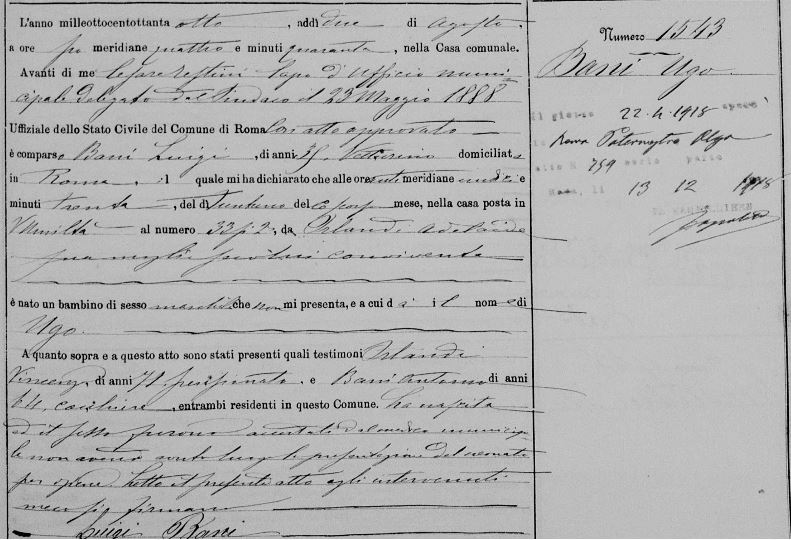 L'anno milleottocentottanta otto, addì due di Agosto,
a ore po meridiane quattro e minuti quaranta, nella Casa comunale.
Avanti di me Cesare Capo d'Ufficio muni
cipale delegato dal Sindaco il 23 Maggio 1888
Uffiziale dello Stato Civile del Comune di Roma con atto approvato
è comparso Bani Luigi, di anni 35, domiciliato
in Roma, il quale mi ha dichiarato che alle ore meridiane e
minuti trenta, del dì trentuno del mese, nella casa posta in
Umiltà al numero 33 p. 2°, da Orlandi Adelaide
sua moglie convivente
è nato un bambino di sesso maschile che non mi presenta, e a cui dà il nome di
Ugo.
A quanto sopra e a questo atto sono stati presenti quali testimoni Orlandi
Vincenzo, di anni 71, pensionato e Bani Antonio di anni
64, entrambi residenti in questo Comune. La nascita
ed il sesso furono accertati dal medico municipa
le non avendo avuto luogo la presentazione del neonato
per Letto il presente atto agli intervenuti
meco si firmano
Luigi Bani
Numero 1543
Bani Ugo
il giorno 22-4-1918 sposò
Roma Paternostro Olga
atto N 759 serie parte
Roma, li 13 12 1918